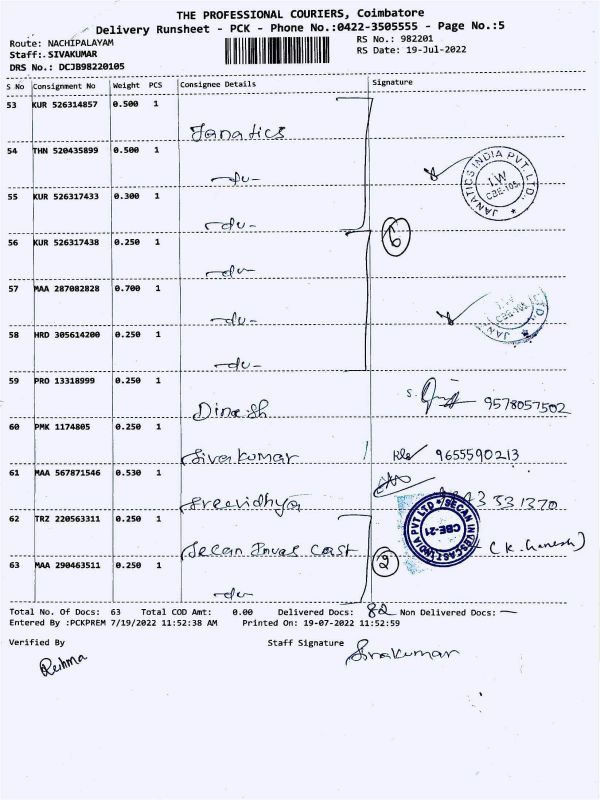 THE PROFESSIONAL COURIERS, Coimbatore
Delivery Runsheet - PCK - Phone No.:0422-3505555 - Page No.:5
Route: NACHIPALAYAM
RS No.: 982201
Staff:.SIVAKUMAR
RS Date: 19-Jul-2022
DRS No.: DCJB98220105
S No Consignment No Weight PCS Consignee Details Signature
53 KUR 526314857 0.500 1
Janatics
54 THN 520435899 0.500 1
-do-
JANATICS INDIA PVT. LTD.
I.W
CBE-105
55 KUR 526317433 0.300 1
-do-
6
56 KUR 526317438 0.250 1
-do-
57 MAA 287082828 0.700 1
-do-
I.W
CBE-105
LTD
58 HRD 305614200 0.250 1
-do-
59 PRO 13318999 0.250 1
Dinesh
9578057502
60 PMK 1174805 0.250 1
Sivakumar 9655590213
61 MAA 567871546 0.530 1
Sreevidhya
43 531370
62 TRZ 220563311 0.250 1
Secan Invas Cast 2
SECAN INVESCAST INDIA PVT LTD
CBE-21
(K. Ganesh)
63 MAA 290463511 0.250 1
-do-
Total No. Of Docs: 63 Total COD Amt: 0.00 Delivered Docs: 82 Non Delivered Docs: —
Entered By :PCKPREM 7/19/2022 11:52:38 AM Printed On: 19-07-2022 11:52:59
Verified By Staff Signature
Reshma Sivakumar